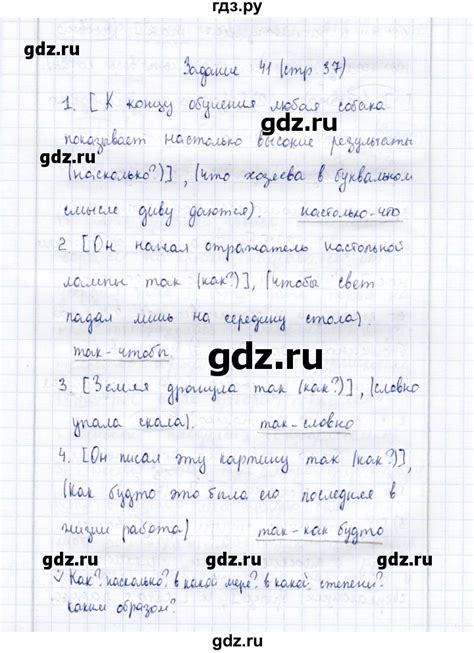 гдз.ру
gdz.ru
Задание 41 (стр 37)
1. [К концу обучения любая собака
gdz.ru
показывает настолько высокие результаты
gdz.ru
(насколько?)], (что хозяева в буквальном
смысле диву даются). настолько-что
2. [Он нажал отражатель настольной
gdz.ru
gdz.ru
лампы так (как?)], (чтобы свет
падал лишь на середину стола).
так-чтобы.
gdz.ru
3. [Земля дрогнула так (как?)], (словно
упала скала). так-словно
gdz.ru
gdz.ru
4. [Он писал эту картину так (как?)],
(как будто это была его последняя в
жизни работа) так-как будто
gdz.ru
gdz.ru
Как? насколько? в какой мере? в какой степени?
каким образом?
gdz.ru